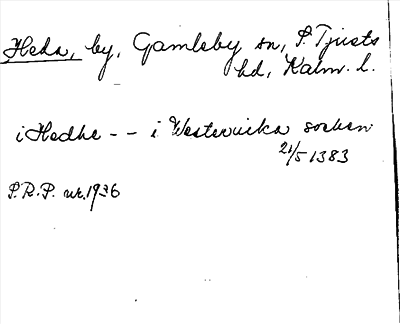 Heda, by, Gamleby sn, S. Tjusts
hd, Kalm. l.
i Hedhe -- i Westeruika soeken
21/5 1383
S.R.P. nr. 1936